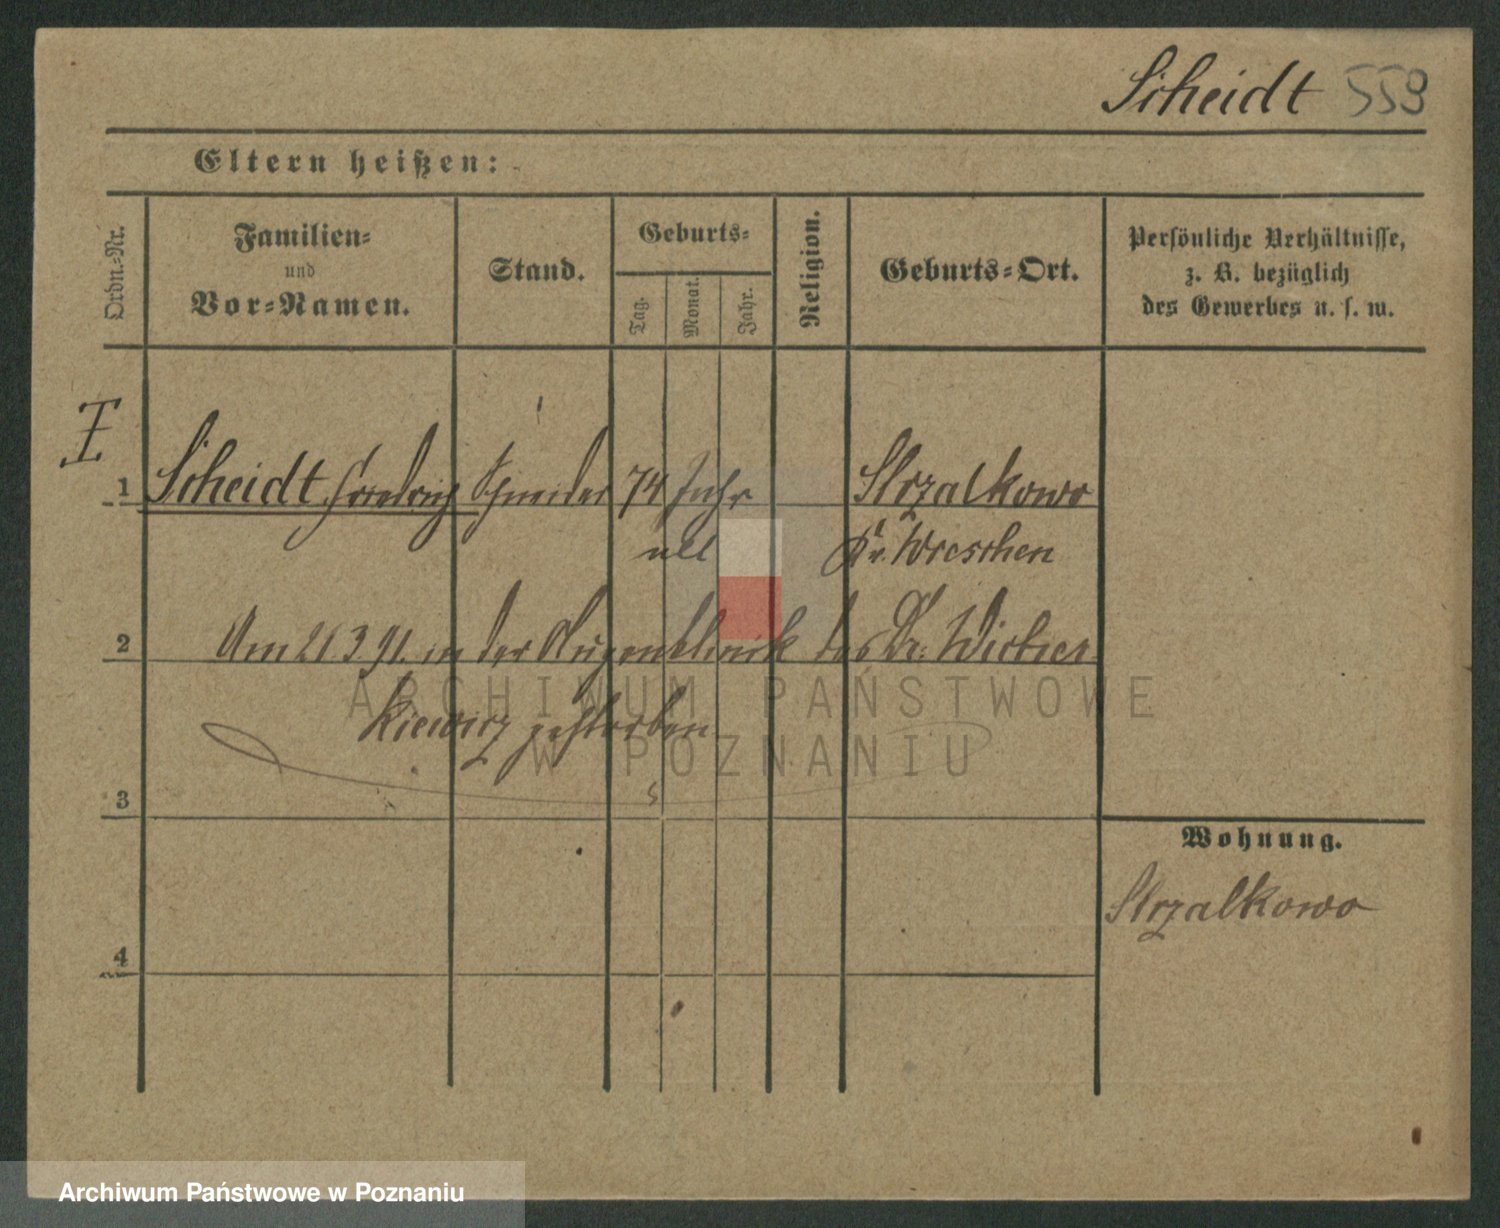 Scheidt 553
Eltern heißen:
Ordn.-Nr.
Familien-
und
Vor-Namen.
Stand.
Geburts-
Tag.
Monat.
Jahr.
Religion.
Geburts-Ort.
Persönliche Verhältnisse,
z. B. bezüglich
des Gewerbes u. s. w.
I
1 Scheidt Friedrich Schneider 74 Jahr Strzalkowo
alt Kr. Wreschen
2 Am 21.3.91. in der Augenklinik des Dr. Wicher
kiewicz gestorben
ARCHIWUM PAŃSTWOWE
W POZNANIU
3
Wohnung.
Strzalkowo
4
Archiwum Państwowe w Poznaniu